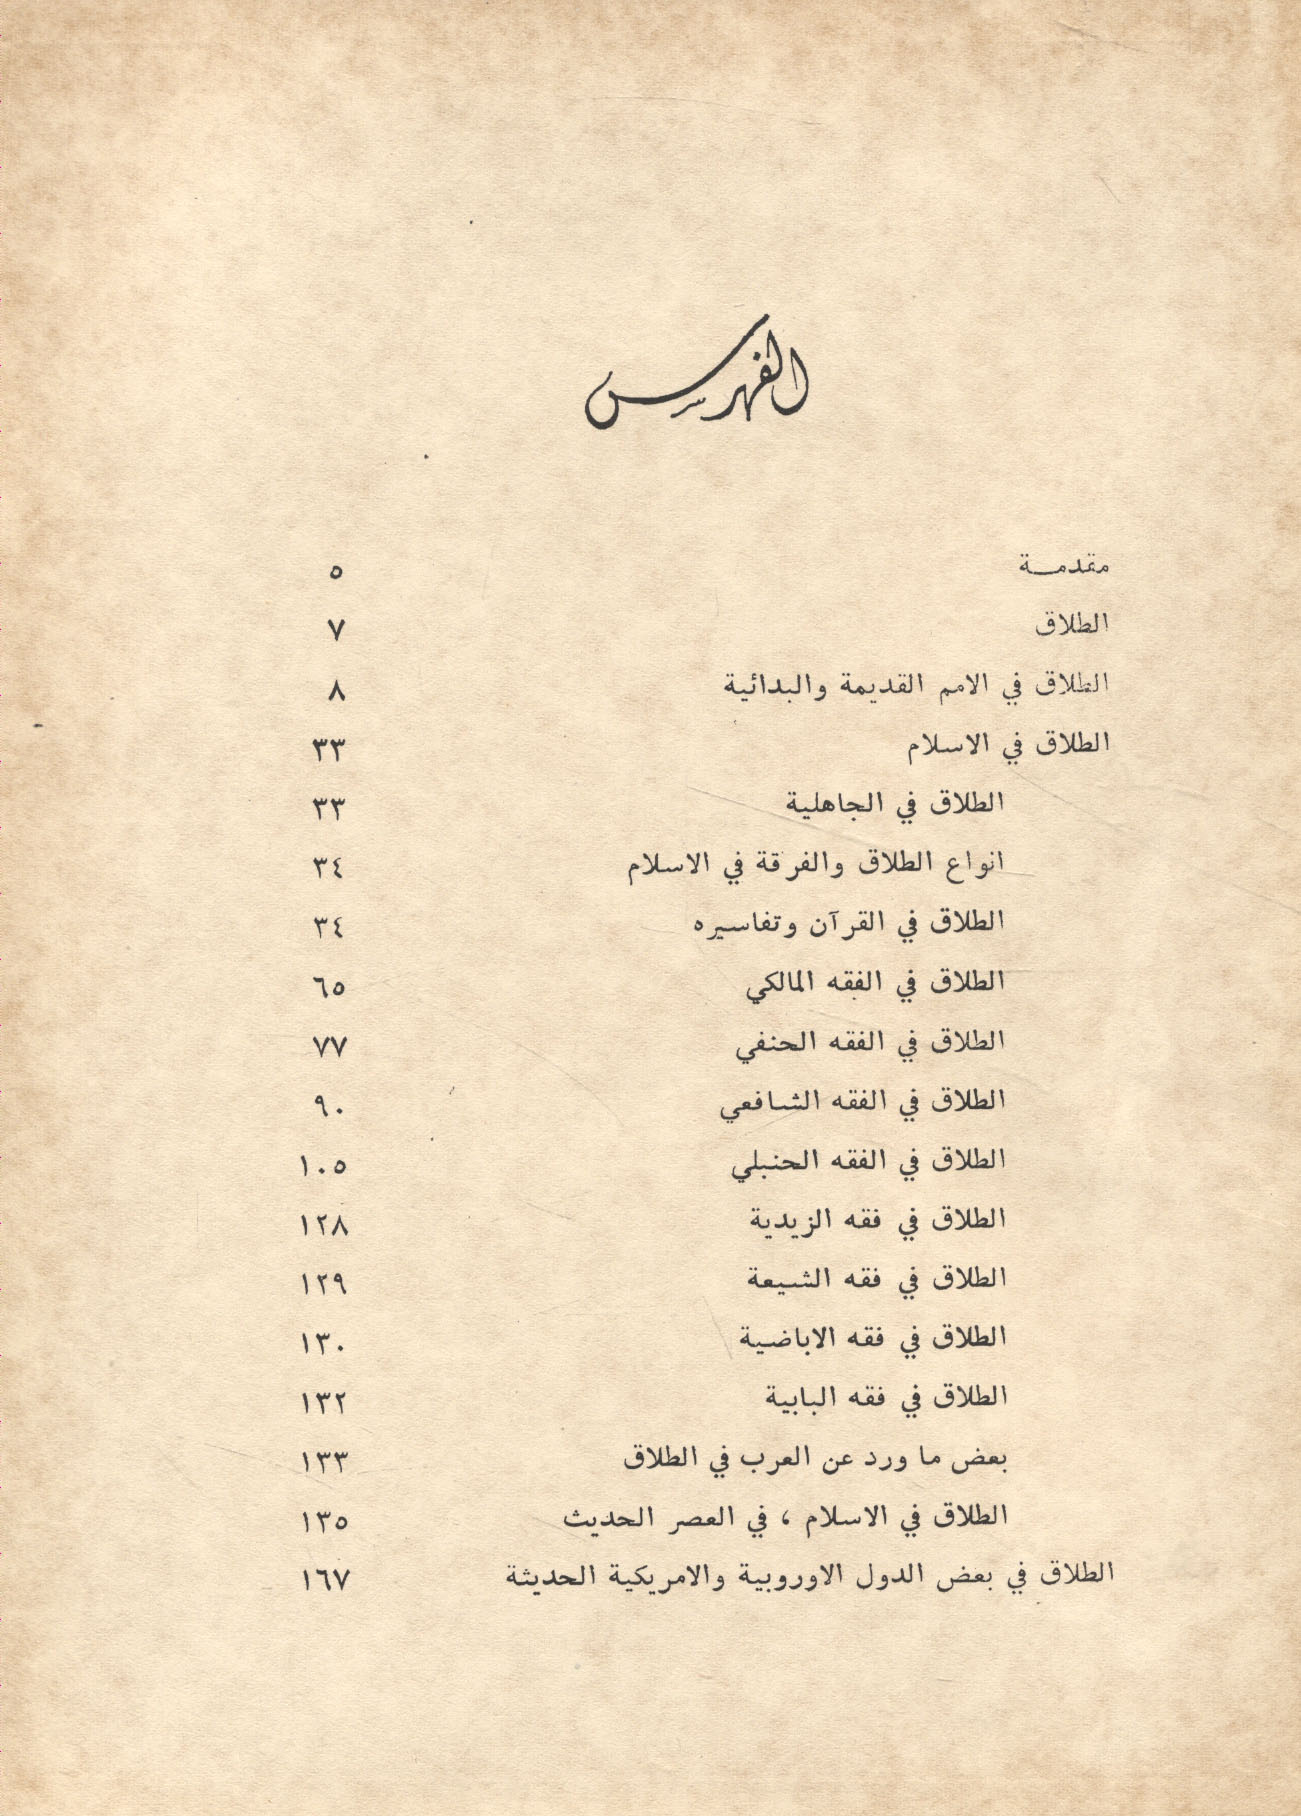 الفهرس
مقدمــة ٥
الطلاق ٧
الطلاق في الامم القديمة والبدائية ٨
الطلاق في الاسلام ٣٣
الطلاق في الجاهلية ٣٣
انواع الطلاق والفرقة في الاسلام ٣٤
الطلاق في القرآن وتفاسيره ٣٤
الطلاق في الفقه المالكي ٦٥
الطلاق في الفقه الحنفي ٧٧
الطلاق في الفقه الشافعي ٩٠
الطلاق في الفقه الحنبلي ١٠٥
الطلاق في فقه الزيدية ١٢٨
الطلاق في فقه الشيعة ١٢٩
الطلاق في فقه الاباضية ١٣٠
الطلاق في فقه البابية ١٣٢
بعض ما ورد عن العرب في الطلاق ١٣٣
الطلاق في الاسلام ، في العصر الحديث ١٣٥
الطلاق في بعض الدول الاوروبية والامريكية الحديثة ١٦٧